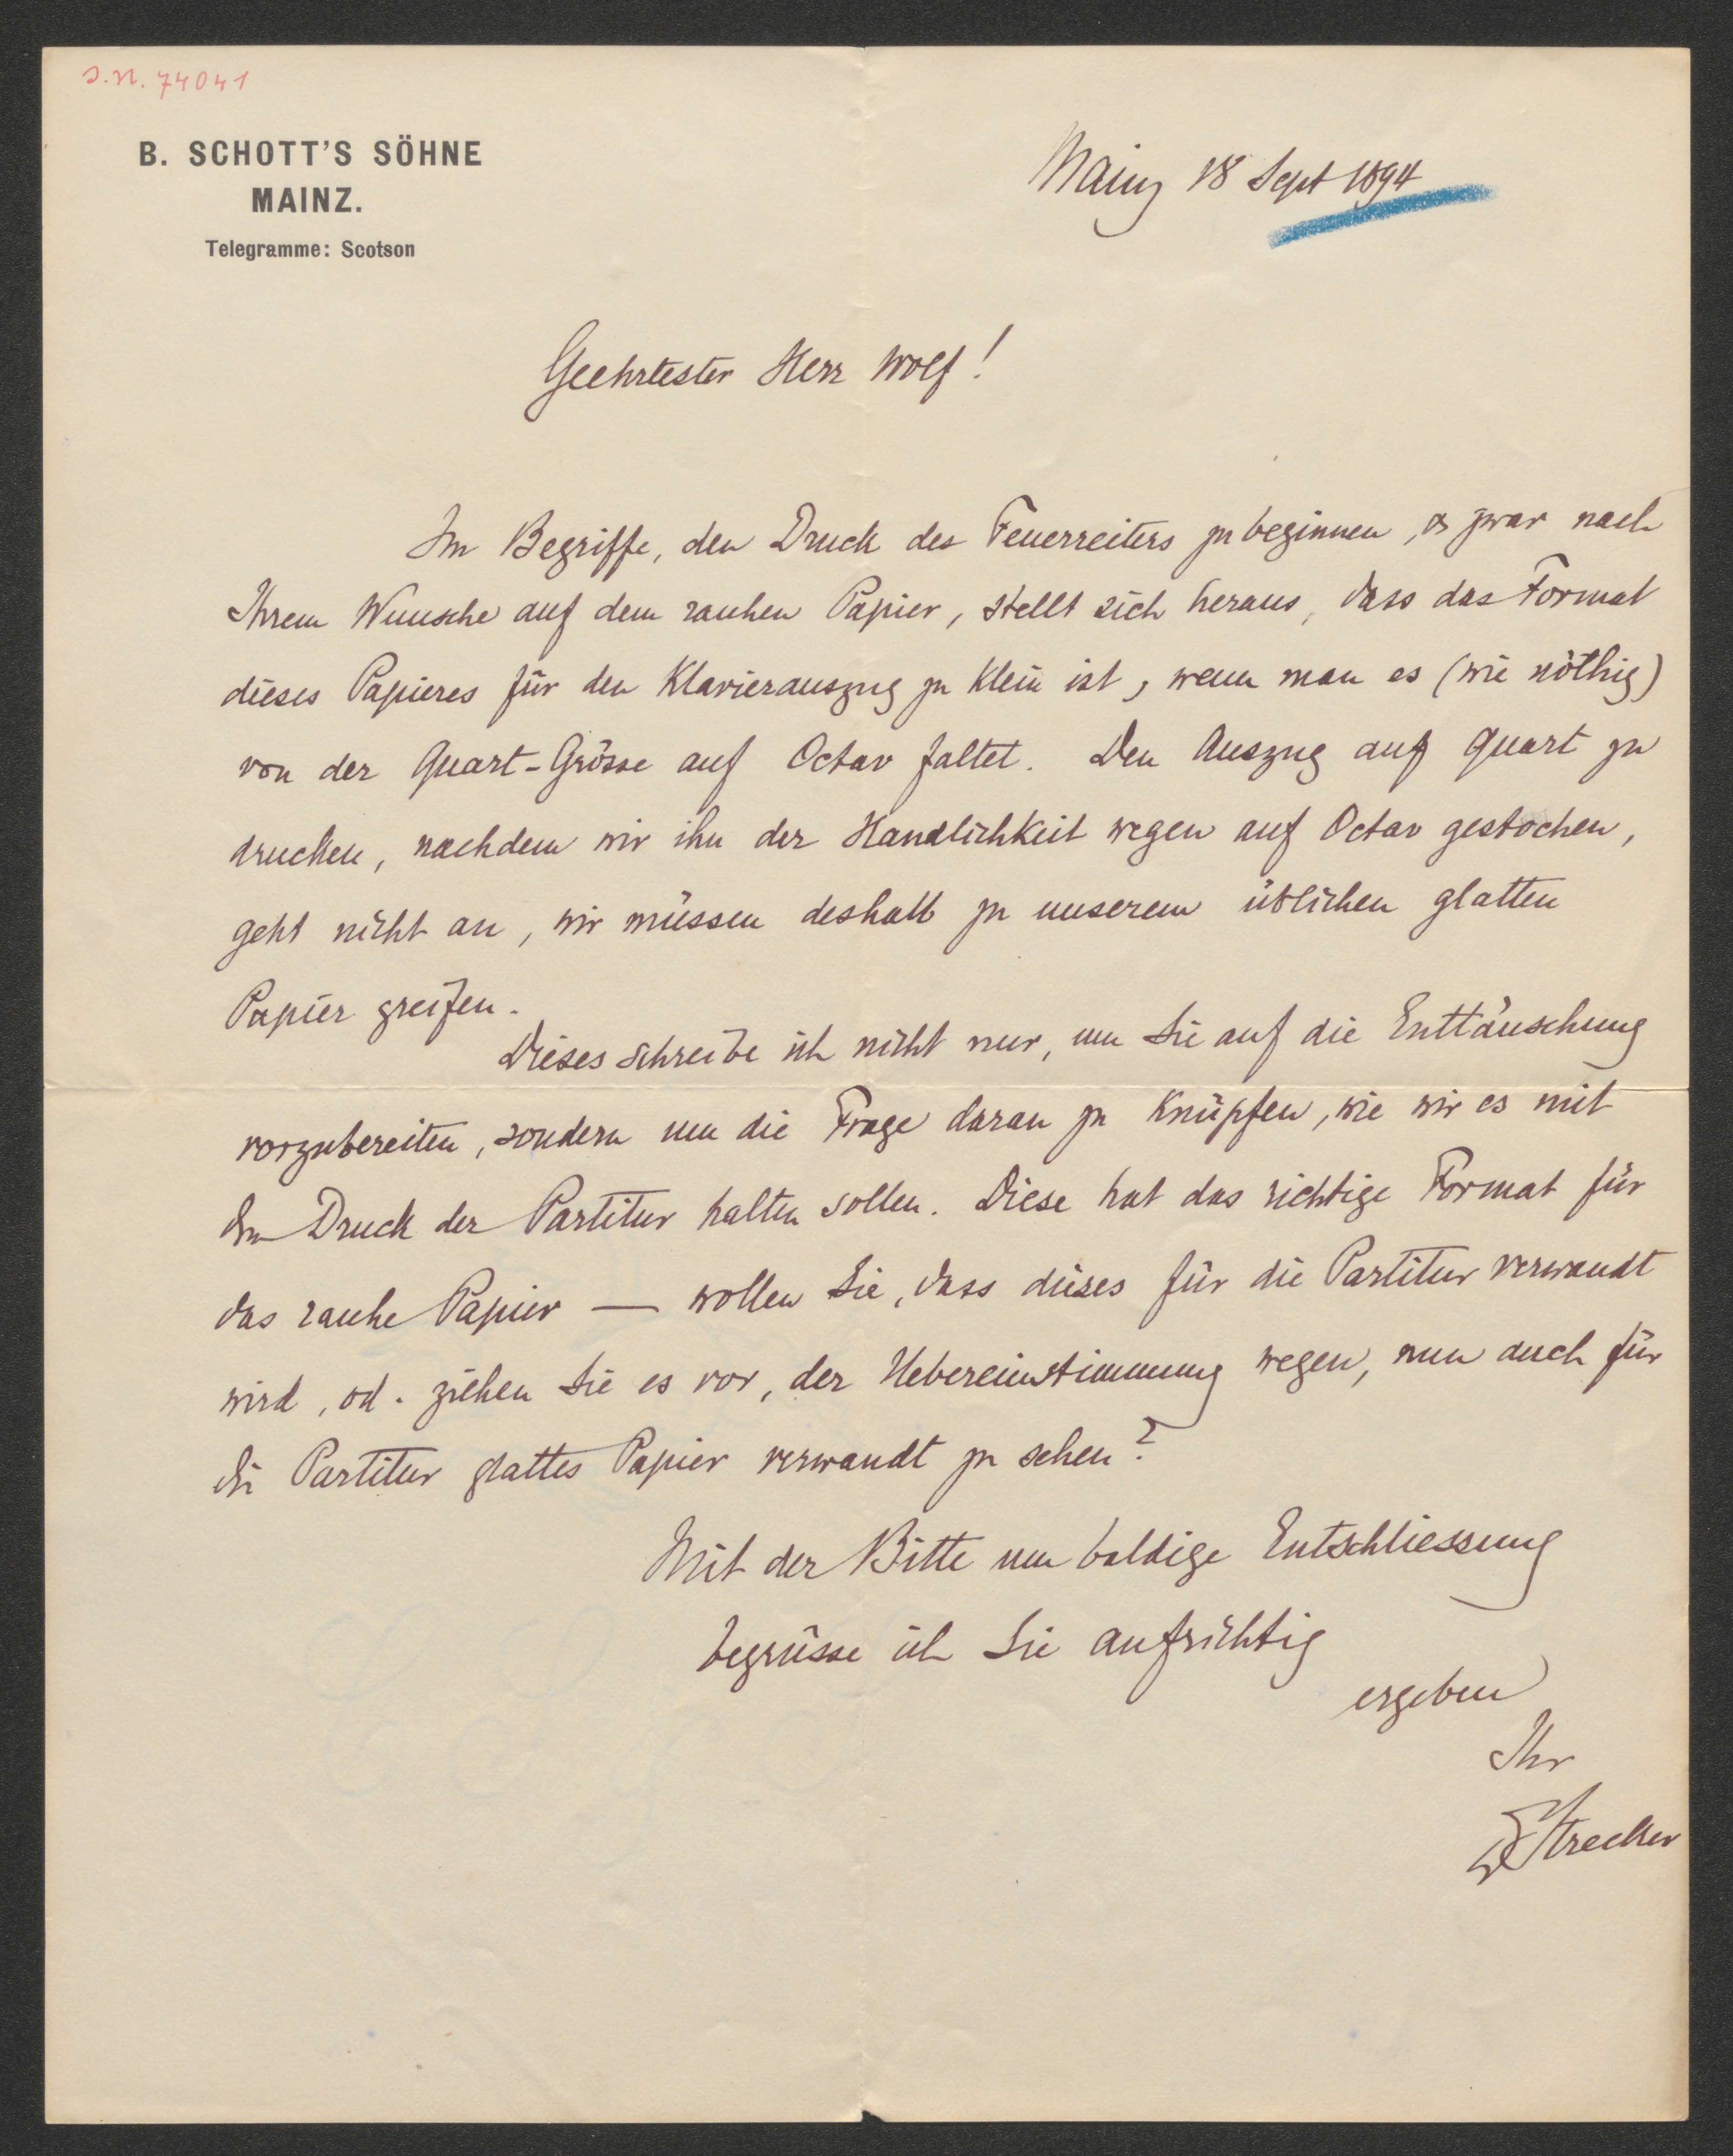 J.N. 74041
B. SCHOTT'S SÖHNE
MAINZ.
Telegramme: Scotson
Mainz 18 Sept 1894
Geehrtester Herr Wolf!
Im Begriffe, den Druck des Feuerreiters zu beginnen, & zwar nach
Ihrem Wunsche auf dem rauhen Papier, stellt sich heraus, dass das Format
dieses Papieres für den Klavierauszug zu klein ist, wenn man es (wie nöthig)
von der Quart-Grösse auf Octav faltet. Den Auszug auf Quart zu
drucken, nachdem wir ihn der Handlichkeit wegen auf Octav gestochen,
geht nicht an, wir müssen deshalb zu unserem üblichen glatten
Papier greifen.
Dieses schreibe ich nicht nur, um Sie auf die Enttäuschung
vorzubereiten, sondern um die Frage daran zu knüpfen, wie wir es mit
dem Druck der Partitur halten sollen. Diese hat das richtige Format für
das rauhe Papier — wollen Sie, dass dieses für die Partitur verwandt
wird, od. ziehen Sie es vor, der Uebereinstimmung wegen, nun auch für
die Partitur glattes Papier verwandt zu sehen?
Mit der Bitte um baldige Entschliessung
begrüsse ich Sie aufrichtig
ergeben
Ihr
LStrecker